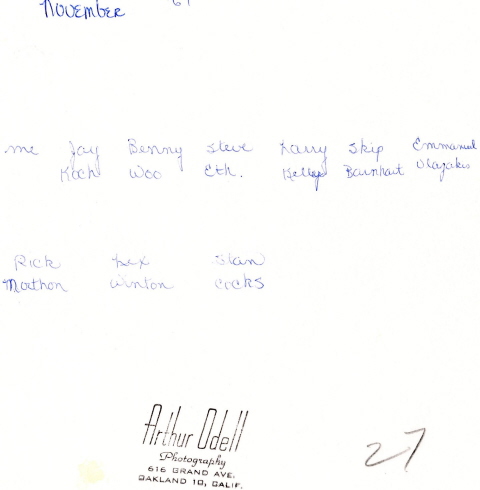 November 61
me Jay Benny Steve Larry Skip Emmanuel
Koch Woo Eth. Kelley Barnhart Vlazakis
Rick Lex Stan
Mathon Winton Cocks
Arthur Odell
Photography
616 GRAND AVE.
OAKLAND 10, CALIF.
27